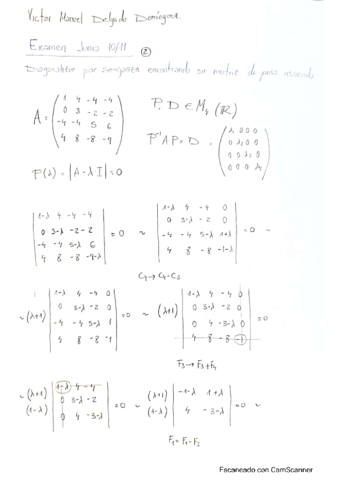 Victor Manuel Delgado Domínguez.
Examen Junio 10/11 ②
Diagonalizar por semejanza encontrando su matriz de paso asociada
A = ( 1 4 -4 -4
0 3 -2 -2
-4 -4 5 6
4 8 -8 -9 )
P, D ∈ M₄ (ℝ)
P⁻¹AP = D = ( λ 0 0 0
0 λ 0 0
0 0 λ 0
0 0 0 λ )
P(λ) = |A - λI| = 0
| 1-λ 4 -4 -4
0 3-λ -2 -2
-4 -4 5-λ 6
4 8 -8 -9-λ | = 0 ~
| 1-λ 4 -4 0
0 3-λ -2 0
-4 -4 5-λ 1+λ
4 8 -8 -1-λ | = 0 ~
C₄ → C₄ - C₃
~ (λ+1) | 1-λ 4 -4 0
0 3-λ -2 0
-4 -4 5-λ 1
4 8 -8 -1 | = 0 ~
(λ+1) | 1-λ 4 -4 0
0 3-λ -2 0
0 4 -3-λ 0
4 8 -8 -1 | = 0
F₃ → F₃ + F₄
~ (λ+1) (1-λ) | 1-λ 4 -4
0 3-λ -2
0 4 -3-λ | = 0 ~
(λ+1) (1-λ) | -1-λ 1+λ
4 -3-λ | = 0 ~
F₁ = F₁ - F₂
Escaneado con CamScanner